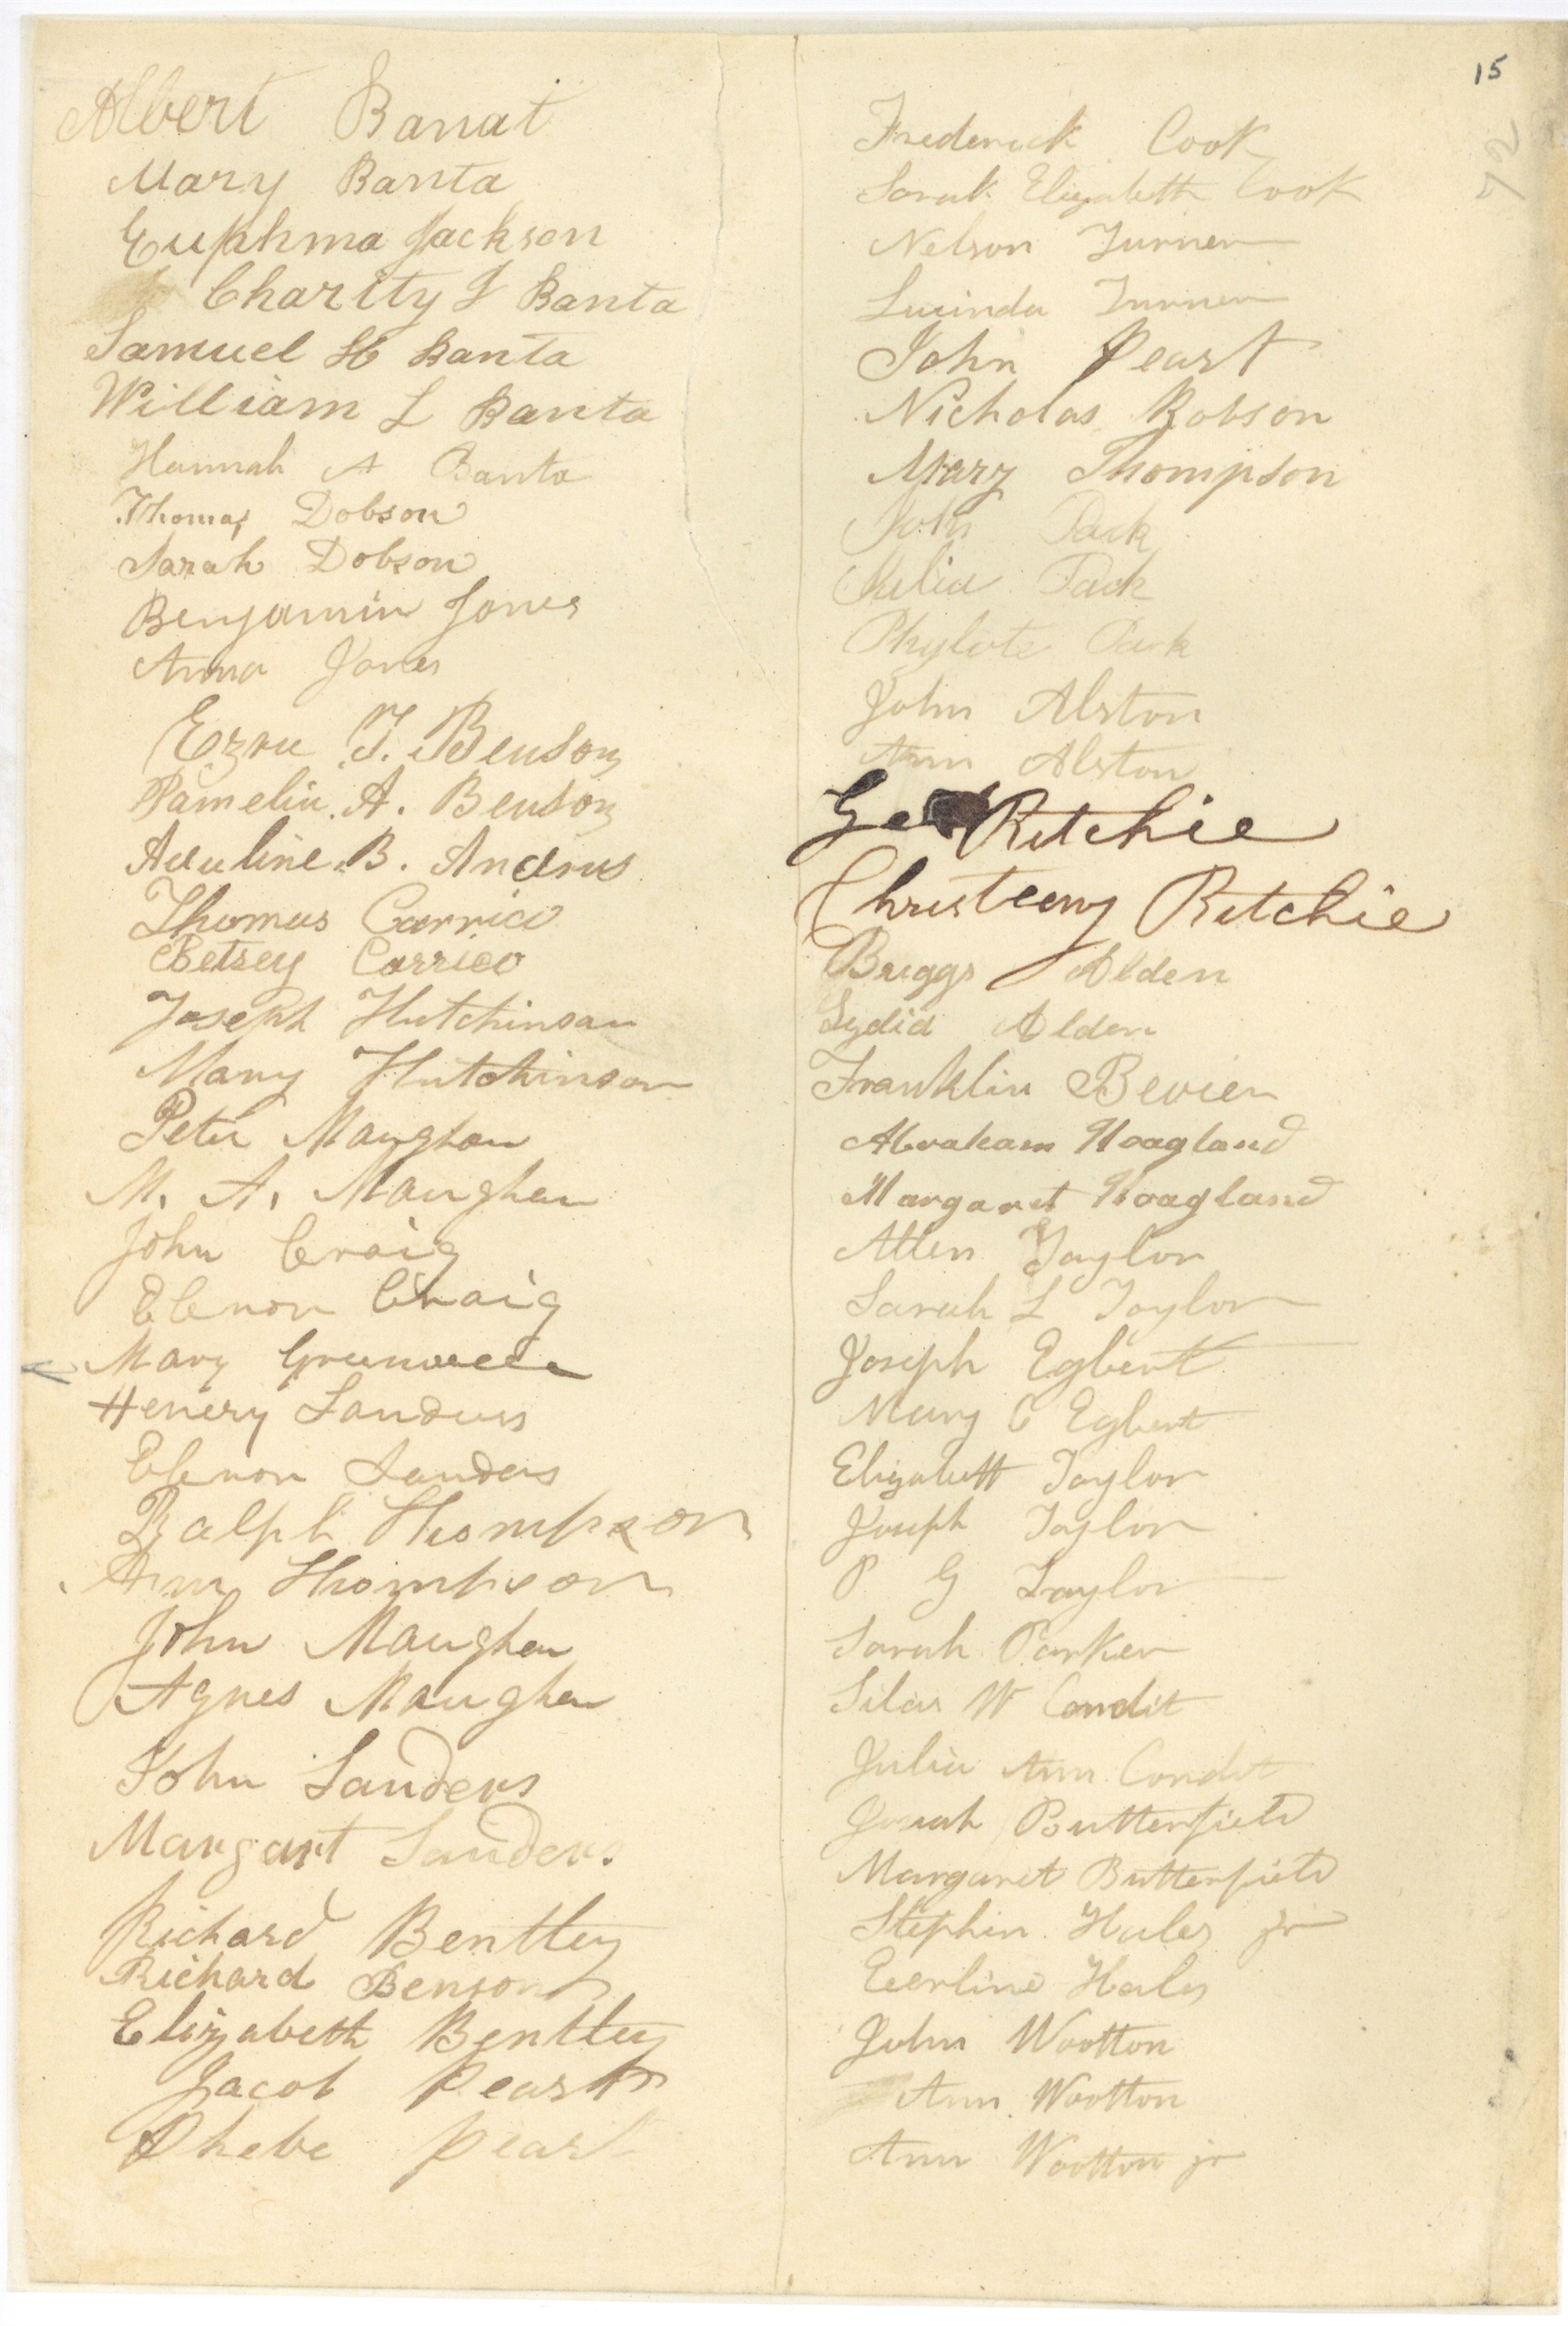 15
72
Albert Banat
Mary Banta
Euphma Jackson
Charity J Banta
Samuel H Banta
William L Banta
Hannah A Banta
Thomas Dobson
Sarah Dobson
Benjamin Jones
Anna Jones
Ezra T. Benson
Pamelia. A. Benson
Aduline. B. Andrus
Thomas Carrico
Betsey Carrico
Joseph Hutchinson
Mary Hutchinson
Peter Maughan
M. A. Maughan
John Craig
Elenor Craig
Mary
Henery Sanders
Elenor Sanders
Ralph Thompson
Ann Thompson
John Maughan
Agnes Maughan
John Sanders
Margart Sanders.
Richard Bentley
Richard Benson
Elizabeth Bentley
Jacob Peart
Phebe Peart
Frederick Cook
Sarah Elizabeth Cook
Nelson Turner
Lucinda Turner
John Peart
Nicholas Robson
Mary Thompson
John Pack
Julia Pack
Phylote Pack
John Alston
Ann Alston
Ge Ritchie
Christeeny Ritchie
Briggs Alden
Lydia Alden
Franklin Bevier
Abraham Hoagland
Margaret Hoagland
Allen Taylor
Sarah L Taylor
Joseph Egbert
Mary C Egbert
Elizabett Taylor
Joseph Taylor
P G Taylor
Sarah Parker
Silas W Condit
Julia Ann Condit
Josiah Butterfield
Margaret Butterfield
Stephin Hales jr
Everline Hales
John Wootton
Ann Wootton
Ann Wootton jr